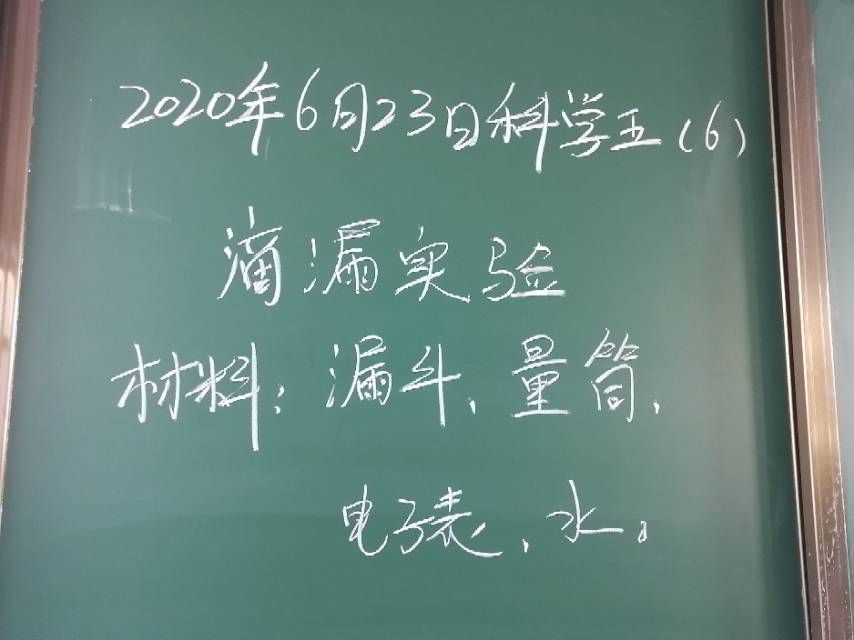 2020年6月23日科学五(6)
滴漏实验
材料：漏斗、量筒、
电子表、水。